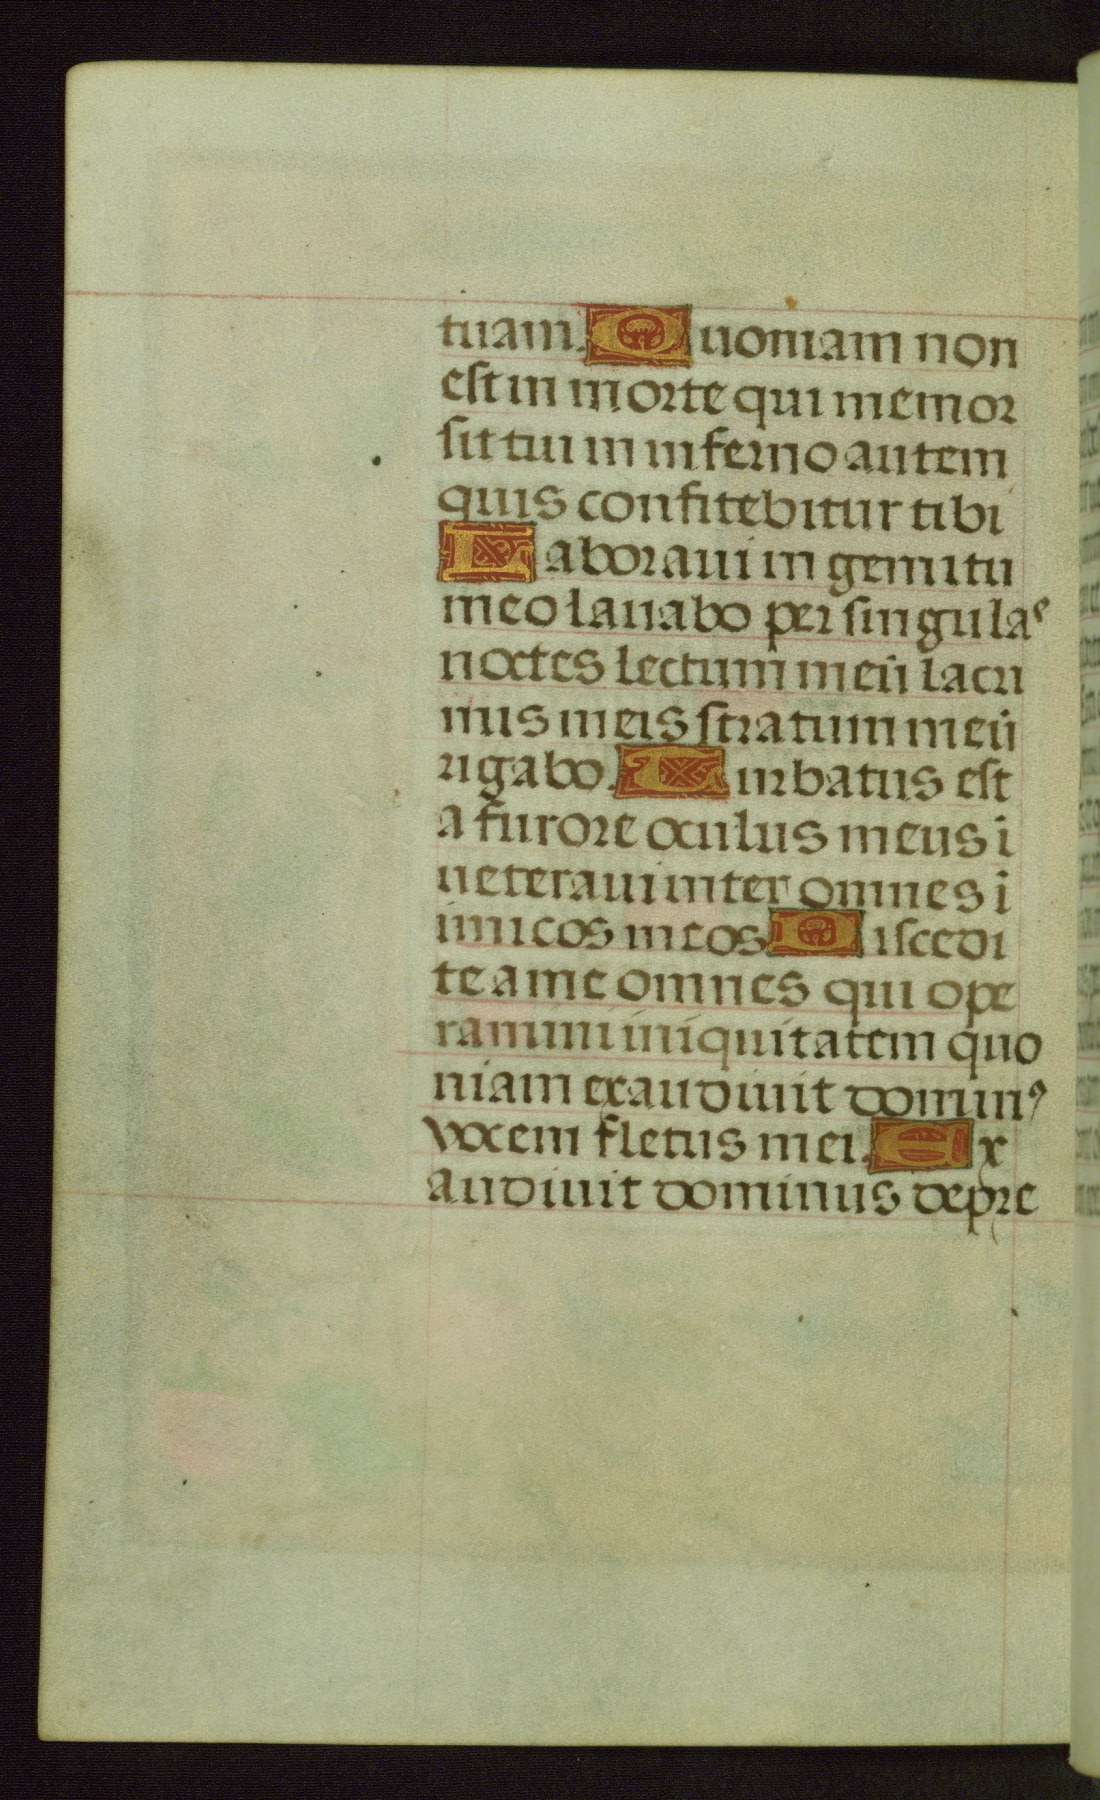 tuam. Quoniam non
est in morte qui memor
sit tui in inferno autem
quis confitebitur tibi
Laboraui in gemitu
meo lauabo per singulas
noctes lectum meū lacri
mis meis stratum meū
rigabo. Turbatus est
a furore oculus meus i
ueteraui inter omnes i
imicos meos Discedi
te a me omnes qui ope
ramini iniquitatem quo
niam exaudiuit dominꝰ
vocem fletus mei. Ex
audiuit dominus depre